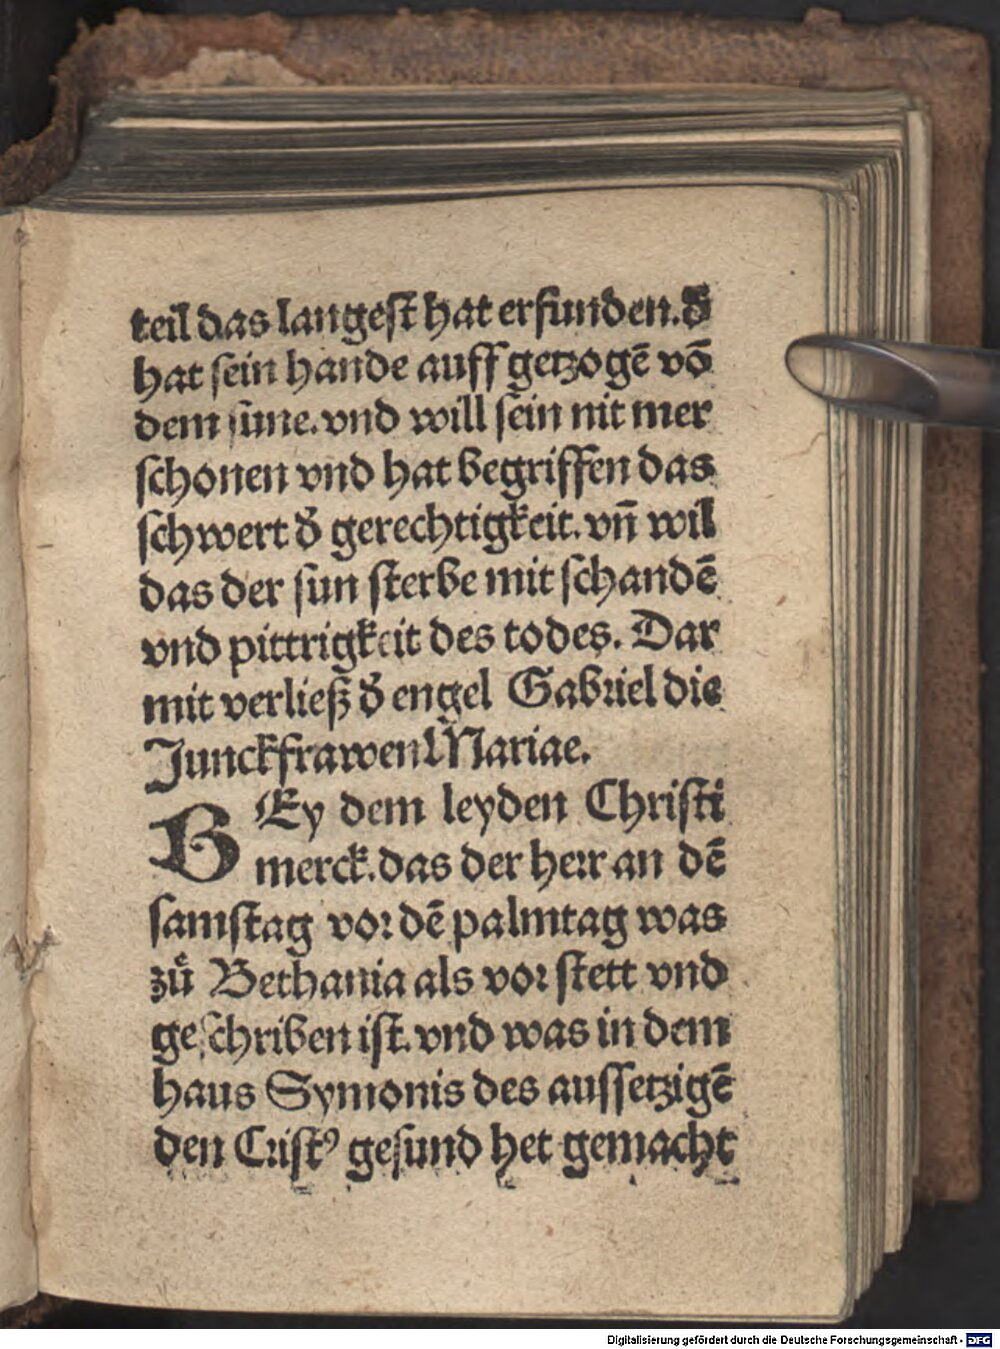 teil das langest hat erfunden. d̕
hat sein hande auff getzogē vō
dem sune. vnd will sein nit mer
schonen vnd hat begriffen das
schwert d̕ gerechtigkeit. vn̄ wil
das der sun sterbe mit schandē
vnd pittrigkeit des todes. Dar
mit verließ d̕ engel Gabriel die
Junckfrawen Mariae.
BEy dem leyden Christi
merck. das der herr an dē
samstag vor dē palmtag was
zů Bethania als vor stett vnd
geschriben ist. vnd was in dem
haus Symonis des aussetzigē
den Cristꝰ gesund het gemacht
Digitalisierung gefördert durch die Deutsche Forschungsgemeinschaft - DFG